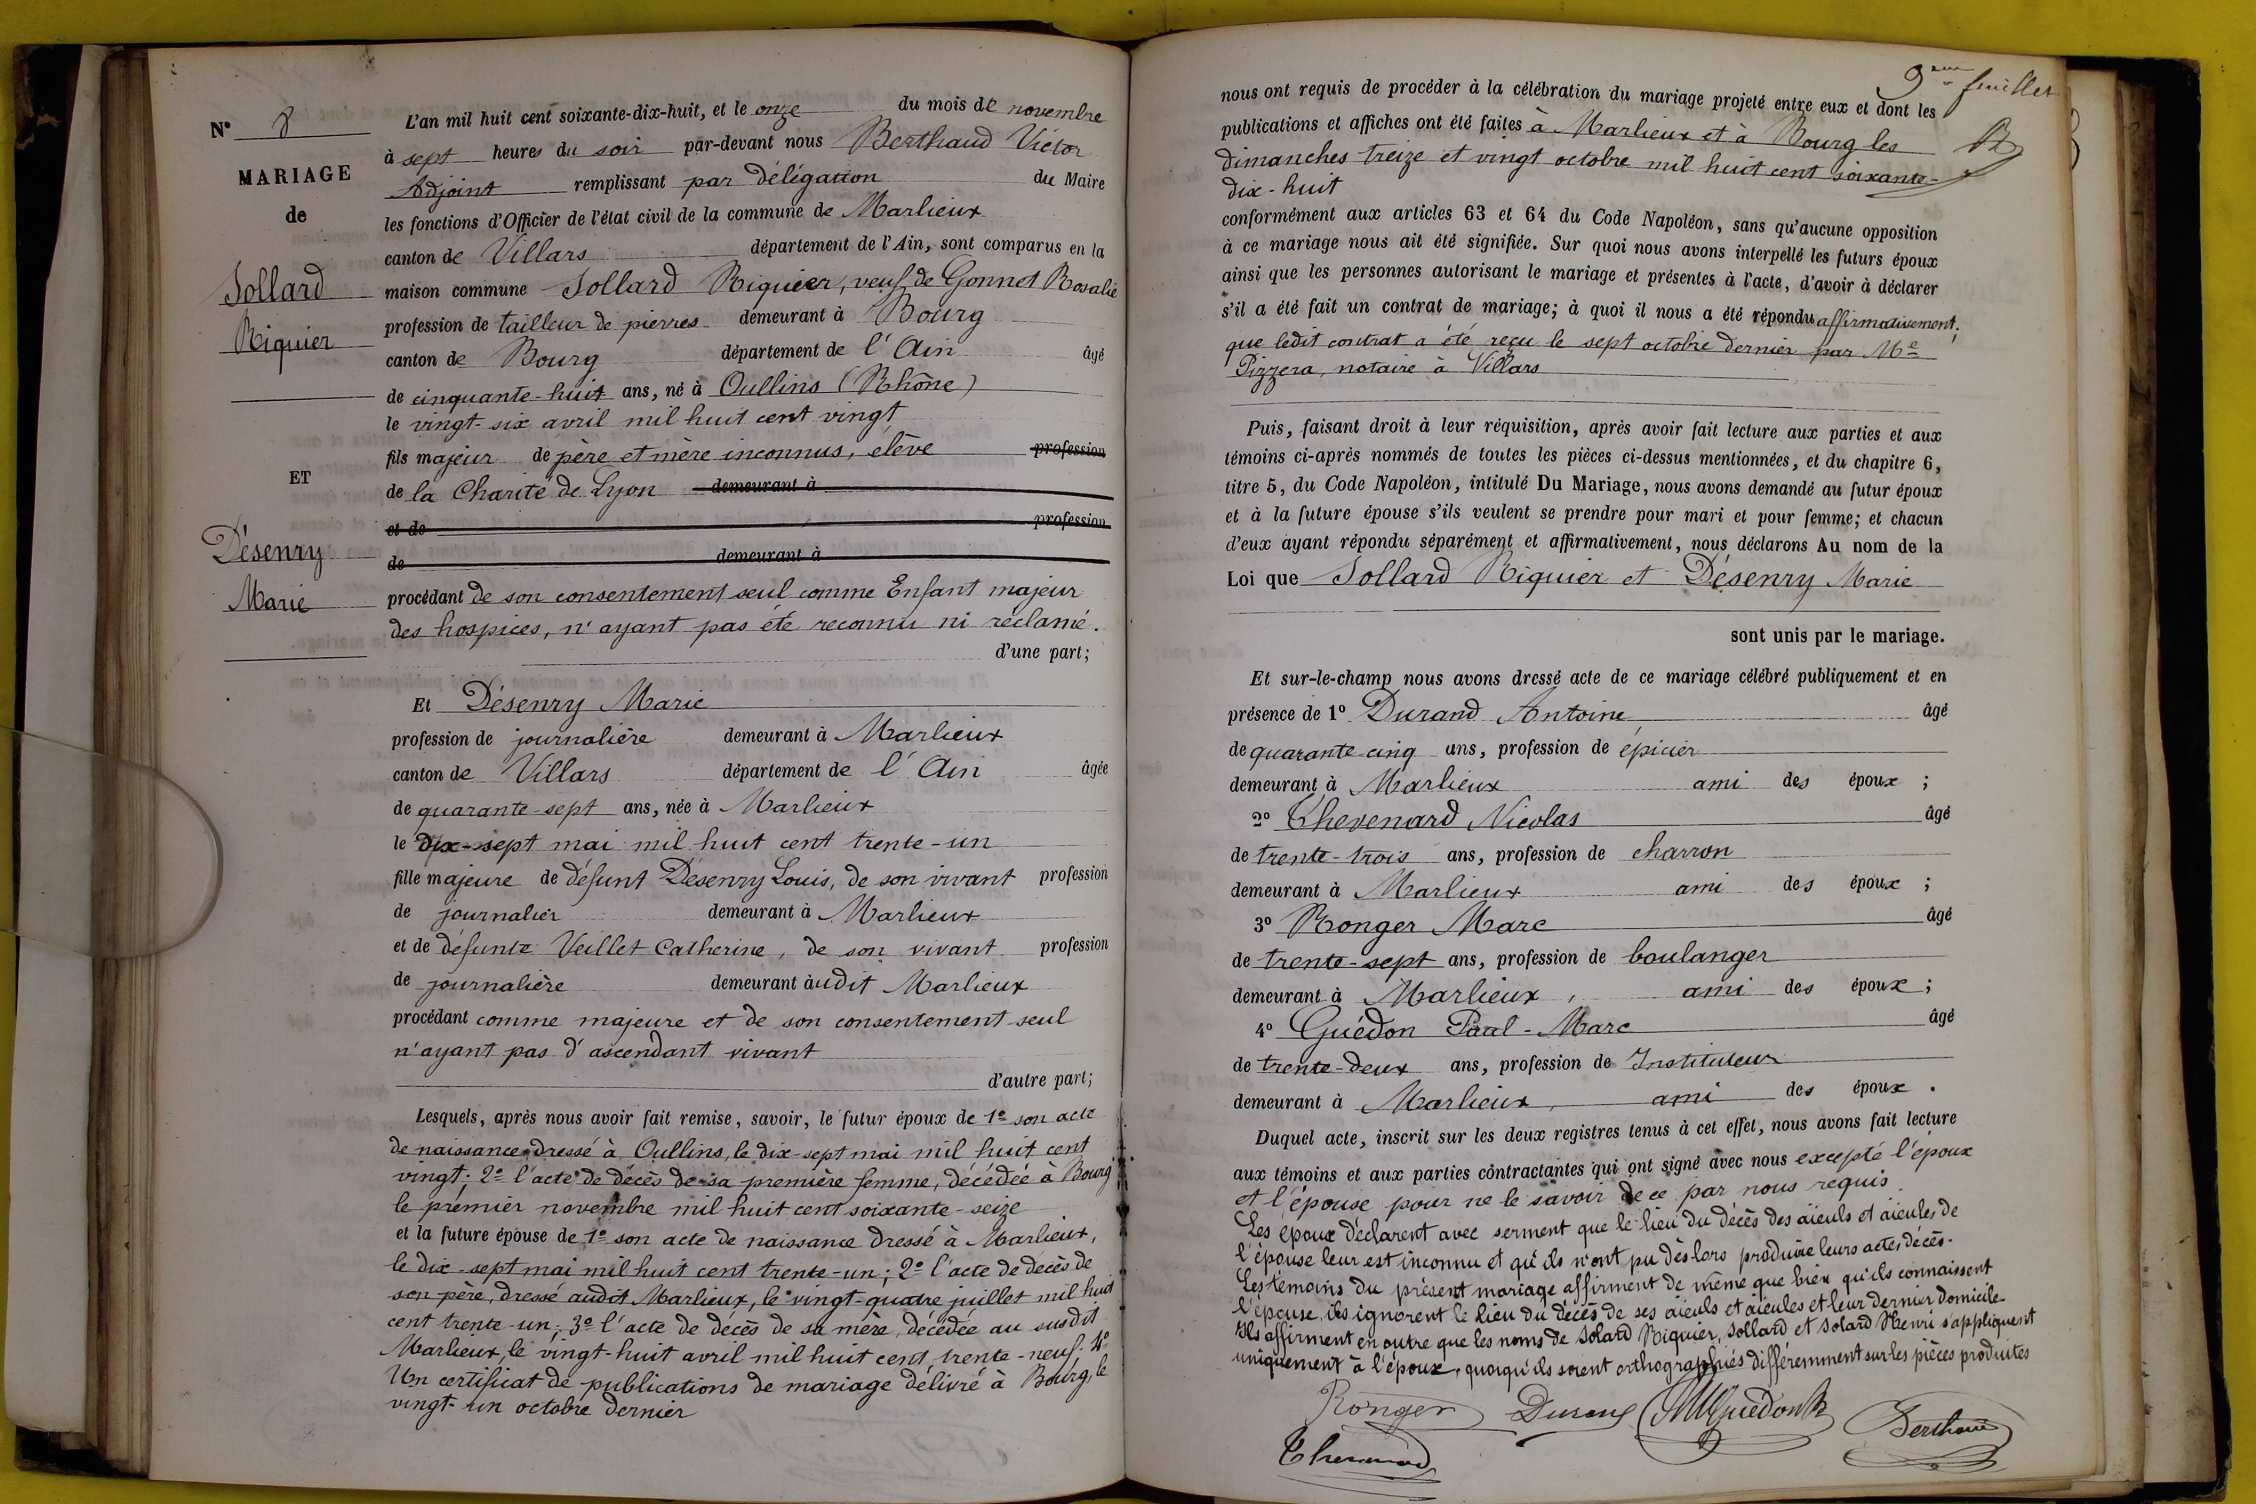 N° 8
MARIAGE
de
Sollard
Riquier
ET
Désenry
Marie
L'an mil huit cent soixante-dix-huit, et le onze du mois de novembre
à sept heures du soir par-devant nous Berthaud Victor
Adjoint remplissant par délégation du Maire
les fonctions d'Officier de l'état civil de la commune de Marlieux
canton de Villars département de l'Ain, sont comparus en la
maison commune Sollard Riquier, veuf de Gonnet Rosalie
profession de tailleur de pierres demeurant à Bourg
canton de Bourg département de l'Ain âgé
de cinquante-huit ans, né à Oullins (Rhône)
le vingt-six avril mil huit cent vingt
fils majeur de père et mère inconnus, élève profession
de la Charité de Lyon demeurant à
et de profession
de demeurant à
procédant de son consentement seul comme Enfant majeur
des hospices, n'ayant pas été reconnu ni réclamé.
d'une part;
Et Désenry Marie
profession de journalière demeurant à Marlieux
canton de Villars département de l'Ain âgée
de quarante-sept ans, née à Marlieux
le dix-sept mai mil huit cent trente-un
fille majeure de défunt Désenry Louis, de son vivant profession
de journalier demeurant à Marlieux
et de défunte Veillet Catherine, de son vivant profession
de journalière demeurant àudit Marlieux
procédant comme majeure et de son consentement seul
n'ayant pas d'ascendant vivant
d'autre part;
Lesquels, après nous avoir fait remise, savoir, le futur époux de 1° son acte
de naissance dressé à Oullins, le dix-sept mai mil huit cent
vingt; 2° l'acte de décès de sa première femme, décédée à Bourg
le premier novembre mil huit cent soixante-seize
et la future épouse de 1° son acte de naissance dressé à Marlieux,
le dix-sept mai mil huit cent trente-un; 2° l'acte de décès de
son père, dressé audit Marlieux, le vingt-quatre juillet mil huit
cent trente-un; 3° l'acte de décès de sa mère, décédée au susdit
Marlieux, le vingt-huit avril mil huit cent trente-neuf. 4°
Un certificat de publications de mariage délivré à Bourg, le
vingt-un octobre dernier
9eme feuillet
nous ont requis de procéder à la célébration du mariage projeté entre eux et dont les
publications et affiches ont été faites à Marlieux et à Bourg les
dimanches treize et vingt octobre mil huit cent soixante-
dix-huit
conformément aux articles 63 et 64 du Code Napoléon, sans qu'aucune opposition
à ce mariage nous ait été signifiée. Sur quoi nous avons interpellé les futurs époux
ainsi que les personnes autorisant le mariage et présentes à l'acte, d'avoir à déclarer
s'il a été fait un contrat de mariage; à quoi il nous a été répondu affirmativement,
que ledit contrat a été reçu le sept octobre dernier par Me
Pizzera, notaire à Villars
Puis, faisant droit à leur réquisition, après avoir fait lecture aux parties et aux
témoins ci-après nommés de toutes les pièces ci-dessus mentionnées, et du chapitre 6,
titre 5, du Code Napoléon, intitulé Du Mariage, nous avons demandé au futur époux
et à la future épouse s'ils veulent se prendre pour mari et pour femme; et chacun
d'eux ayant répondu séparément et affirmativement, nous déclarons Au nom de la
Loi que Sollard Riquier et Désenry Marie
sont unis par le mariage.
Et sur-le-champ nous avons dressé acte de ce mariage célébré publiquement et en
présence de 1° Durand Antoine âgé
de quarante-cinq ans, profession de épicier
demeurant à Marlieux ami des époux ;
2° Chevenard Nicolas âgé
de trente-trois ans, profession de charron
demeurant à Marlieux ami des époux ;
3° Ronger Marc âgé
de trente-sept ans, profession de boulanger
demeurant à Marlieux, ami des époux ;
4° Guédon Paul-Marc âgé
de trente-deux ans, profession de Instituteur
demeurant à Marlieux, ami des époux .
Duquel acte, inscrit sur les deux registres tenus à cet effet, nous avons fait lecture
aux témoins et aux parties contractantes qui ont signé avec nous excepté l'époux
et l'épouse pour ne le savoir de ce par nous requis.
Les époux déclarent avec serment que le lieu du décès des aïeuls et aïeules de
l'épouse leur est inconnu et qu'ils n'ont pu dès lors produire leurs actes décès.
Les témoins du présent mariage affirment de même que bien qu'ils connaissent
l'épouse, ils ignorent le lieu du décès de ses aïeuls et aïeules et leur dernier domicile
Ils affirment en outre que les noms de Solard Riquier, Sollard et Solard Henri s'appliquent
uniquement à l'époux, quoiqu'ils soient orthographiés différemment sur les pièces produites
Ronger Durand Guédon Berthaud
Chevenard